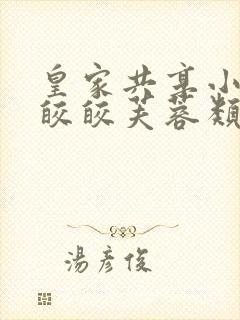 皇家共享小
皎皎芙蓉類
湯彥俊